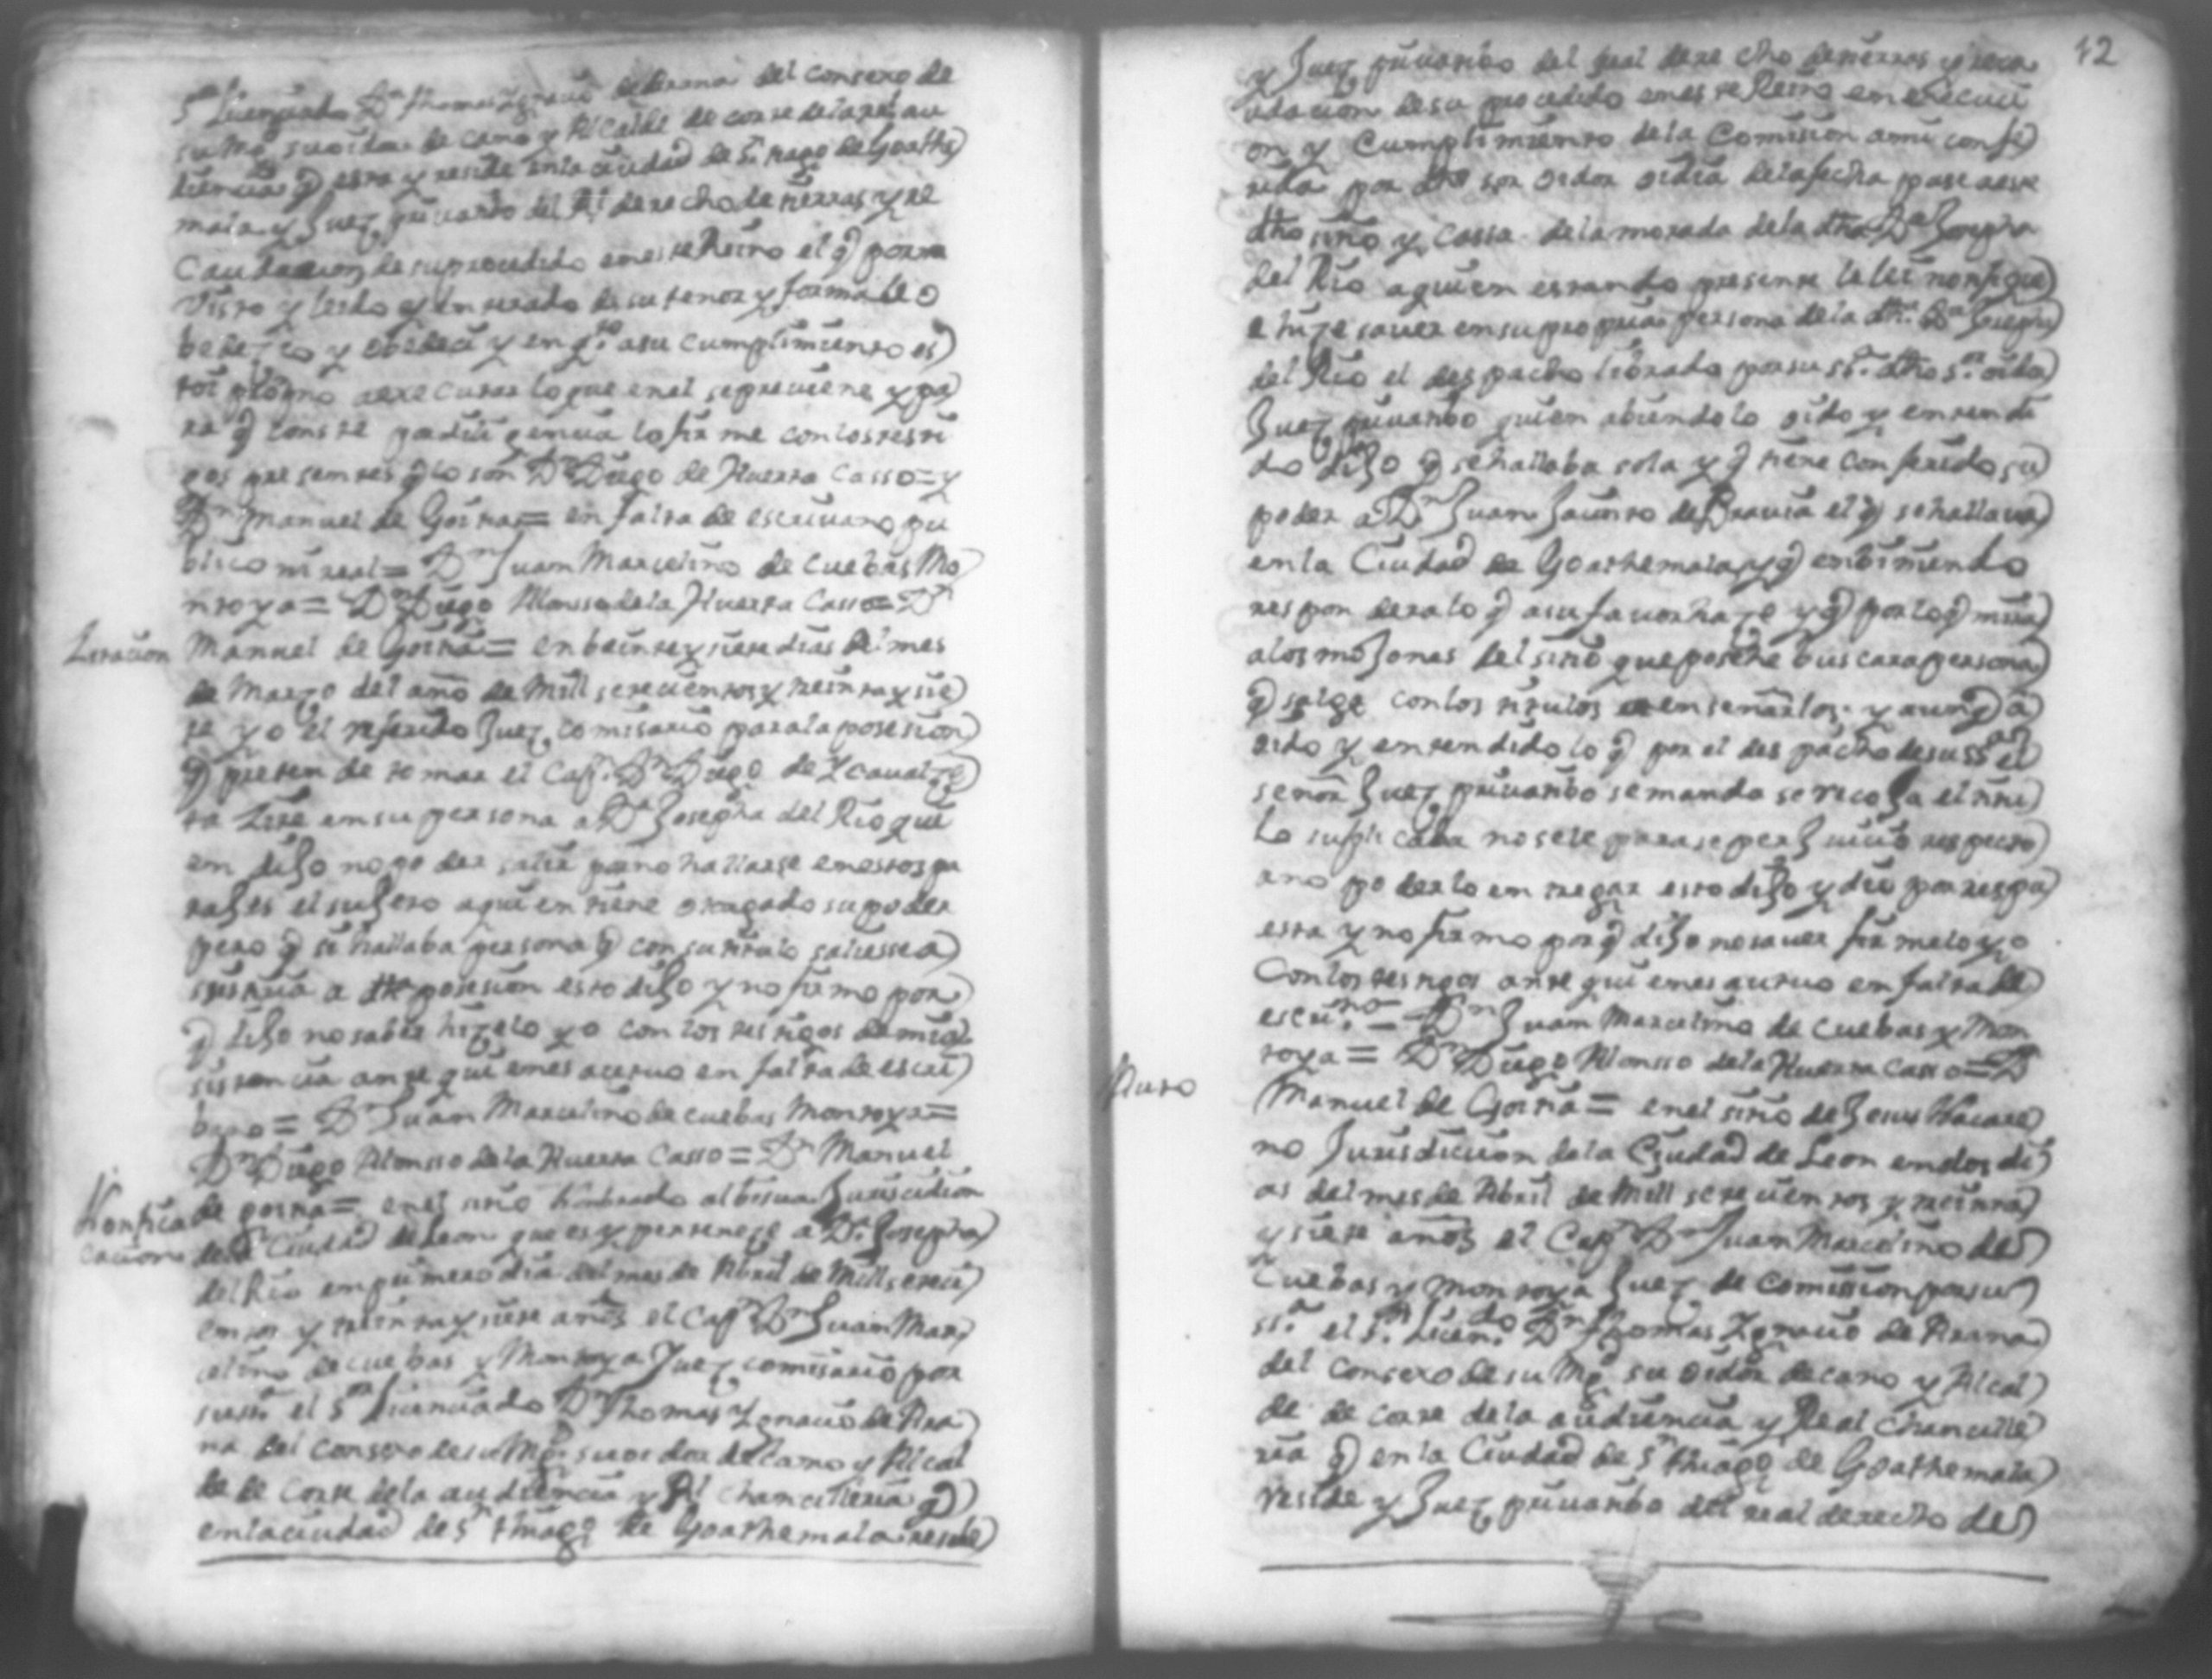 Sor Licenciado Dn Thomas Ygnacio de Arana del consexo de
su Mgd su oidor de cano y Alcalde de corte dela rl au
diencia q esta y reside enla ciudad de Sn tiago de Goathe
mala y Juez privatibo del Rl derecho de tierras y re
caudacion de su procedido eneste Reino el q por mi
visto y leido y enterado de su tenor y forma le o
bedezco y obedeci y en qto asu cumplimiento es
toi pronto a exe cutar lo que enel se previene y pa
ra q conste por dilig encia lo fir me con los testi
gos pre sentes q lo son Dn Diego de Huerta Casso = y
Dn Manuel de Goitia = en falta de escrivano pu
blico ni real = Dn Juan Marcelino de Cuebas Mo
ntoya = Dn Diego Alonsso dela Huerta Casso = Dn
Zitacion Manuel de Goitia = en beinte y siete dias del mes
de Marzo del año de Mill setecientos y treinta y sie
te yo el referido Juez comisario para la posesion
q preten de to mar el Capn Dn Diego de Zcavalze
ta Zite en su persona a Da Josepha del Rio qui
en dijo no po der salir por no hallarse en estos pa
rajes el sujeto a quien tiene otorgado su poder
pero q si hallaba persona q con su titulo saliesse a
sistiria a dha posesion esto dijo y no firmo por
q dijo no saber hizelo yo con los testigos de mi a
sistencia ante qui enes actuo en falta de escri
bano = Dn Juan Marcelino de cuebas Montoya =
Dn Diego Alonsso de la Huerta Casso = Dn Manuel
Notifica de goitia = enel sitio Nombrado Jurisdicion
cacion dela Ciudad de Leon que es y perteneze a Da Josepha
del Rio en primero dia del mes de Abril de Mill seteci
entos y treinta y siete años el Capn Dn Juan Mar
celino de cuebas y Montoya Juez comisario por
su sria el Sor Licenciado Dn Thomas Ygnacio de Ara
na del consexo de su Mgd su oi dor de cano y Alcal
de de Corte dela audiencia y Rl chancilleria q
enla ciudad de Sn thiago de Goathemala reside
42
y Juez privatibo del real dere cho de tierras y reca
udacion de su procedido en es te Reino en execuci
on y Cumplimiento dela Comision ami confe
rida por dho sor oidor oi dia dela fecha pase a este
dho sitio y cassa dela morada dela dha Da Josepha
del Rio aquien estando presente le lei notifique
e hize saver en su pro pria persona dela dha Da Josepha
del Rio el des pacho librado por su sa dho sor oidor
Juez privatibo quien abiendolo oido y entendi
do dijo q se hallaba sola y q tiene conferido su
poder a Dn Juan Jacinto de el q se hallava
enla Ciudad de Goathemala y q en biniendo
respon dera lo q a su favor haze y q por lo q mira
a los mojones del sitio que posehe buscara persona
q salga con los titulos a enseñarlos y aunq a
oido y entendido lo q por el des pacho de su sa el
señor Juez privatibo se manda se reco ja el titu
lo suplicaba no se le parase perjuicio respecto
ano po derlo entregar esto dijo y dio por respu
esta y no firmo por q dijo no saver firmelo yo
Con los testigos ante qui enes actuo en falta de
escrino = Dn Juan Marcelino de Cuebas y Mon
toya = Dn Diego Alonsso dela Huerta Casso = Dn
Auto Manuel de Goitia = enel sitio de Jesus Nacare
no Jurisdicion dela Ciudad de Leon en dos di
as del mes de Abril de Mill setecientos y treinta
y siete años el Capn Dn Juan Marcelino de
Cuebas y Montoya Juez de Comission por su
sa el Sr Licendo Dn Thomas Zgnacio de Arana
del Consexo de su Mgd su oidor de cano y Alcal
de de corte de la audiencia y Real Chancille
ria q en la Ciudad de Sn thiago de Goathemala
reside y Juez privatibo del real derecho de